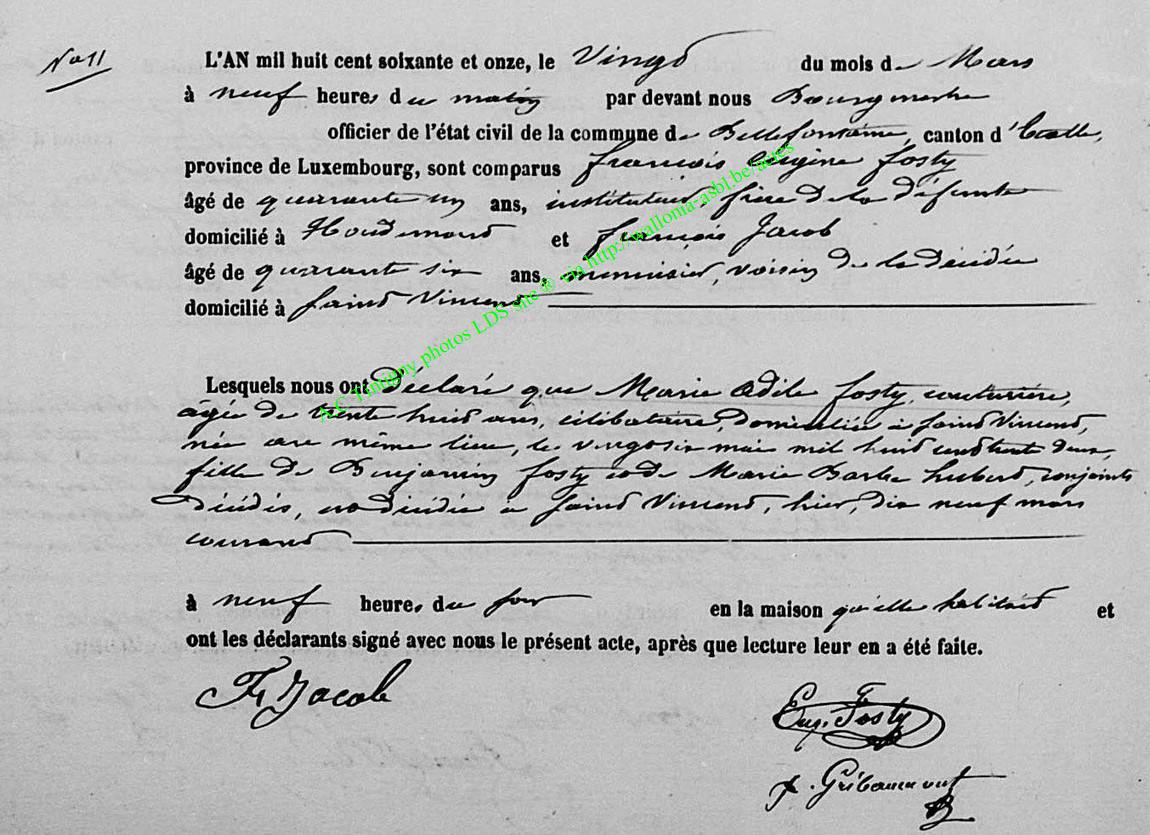 No 11
L'AN mil huit cent soixante et onze, le Vingt du mois de Mars
à neuf heures du matin par devant nous Bourgmestre
officier de l'état civil de la commune de Bellefontaine, canton d'Etalle,
province de Luxembourg, sont comparus françois Eugène fosty
âgé de quarante un ans, instituteur, frère de la défunte
domicilié à Houdemont et françois Jacob
âgé de quarante six ans, menuisier, voisin de la décédée
domicilié à saint Vincent
Lesquels nous ont déclaré que Marie Odile fosty, couturière,
âgée de trente huit ans, célibataire, domiciliée à saint Vincent,
née au même lieu, le vingt six mai mil huit cent trente deux,
fille de Benjamin fosty et de Marie Barbe hubert, conjoints
décédés, est décédée à saint Vincent, hier, dix neuf mars
courant
à neuf heures du soir en la maison qu'elle habitait et
ont les déclarants signé avec nous le présent acte, après que lecture leur en a été faite.
Fr Jacob
Eug. Fosty
Gribaumont
A.C. Tintigny photos LDS site ® via http://wallonia-asbl.be/actes